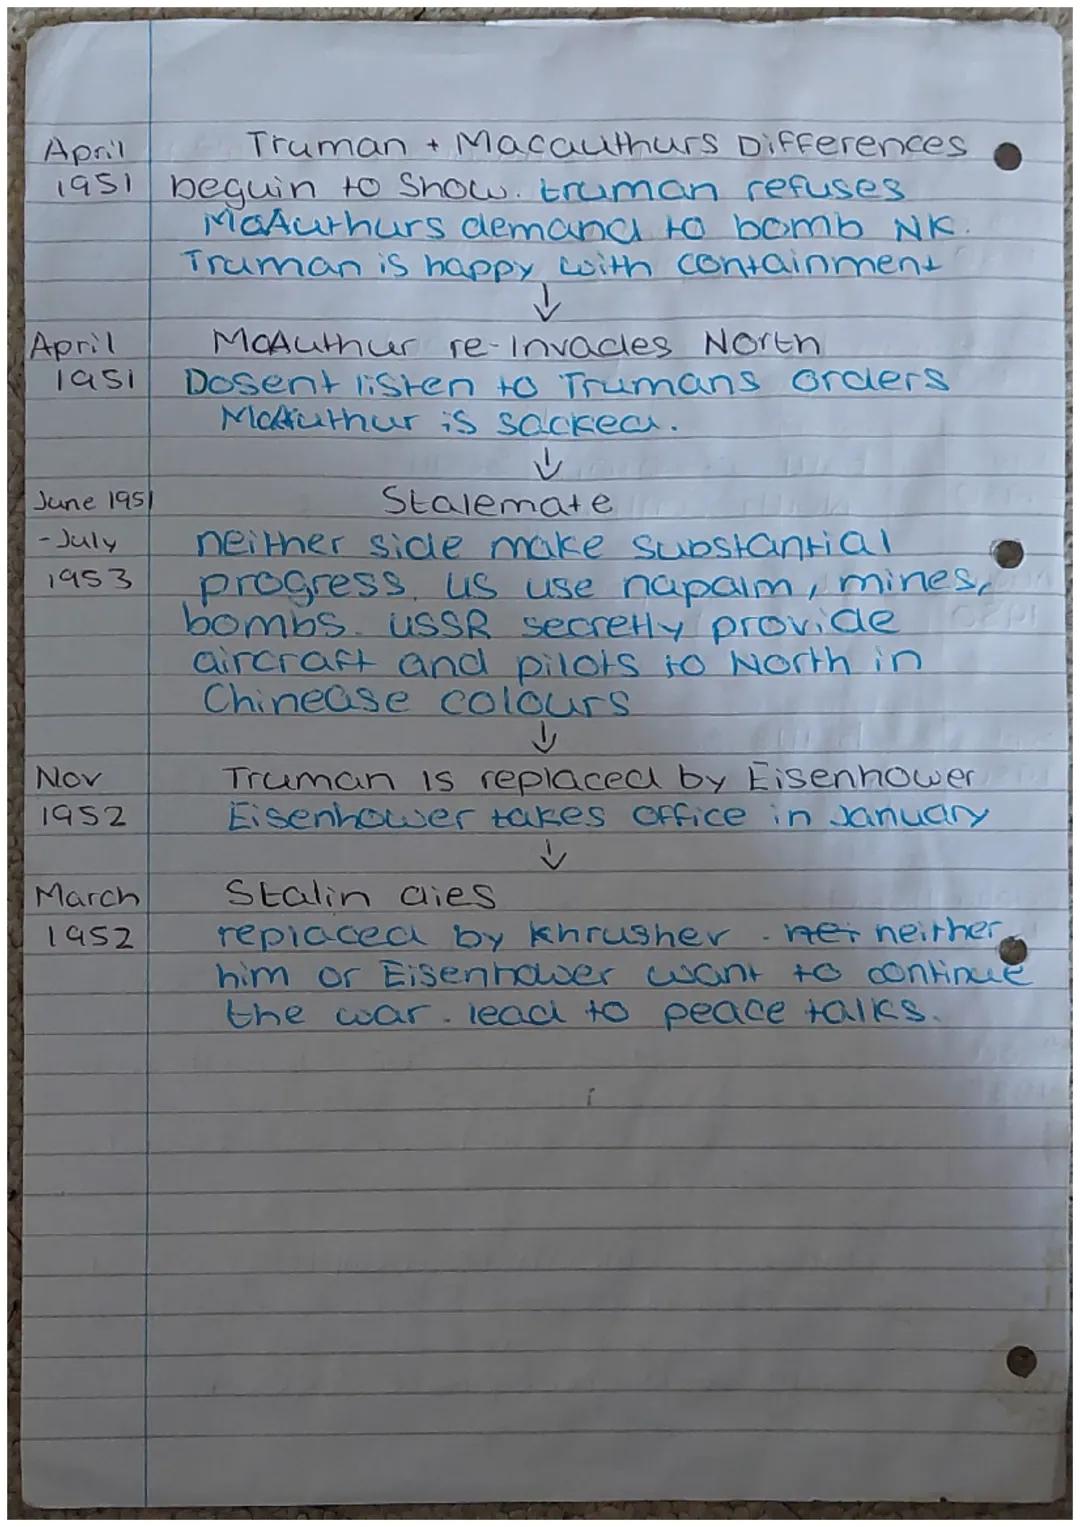 April Truman + Macauthurs Differences
1951 beguin to show. truman refuses
McAuthurs demand to bomb NK.
Truman is happy with containment
↓
April McAuthur re-Invades North
1951 Dosent listen to Trumans orders
McAuthur is sacked.
↓
June 1951 Stalemate
- July neither side make substantial
1953 progress. US use napalm, mines,
bombs. USSR secretly provide
aircraft and pilots to North in
Chinease colours
↓
Nov Truman is replaced by Eisenhower
1952 Eisenhower takes office in January
↓
March Stalin dies
1952 replaced by Khrusher. nei neither
him or Eisenhower want to continue
the war. lead to peace talks.